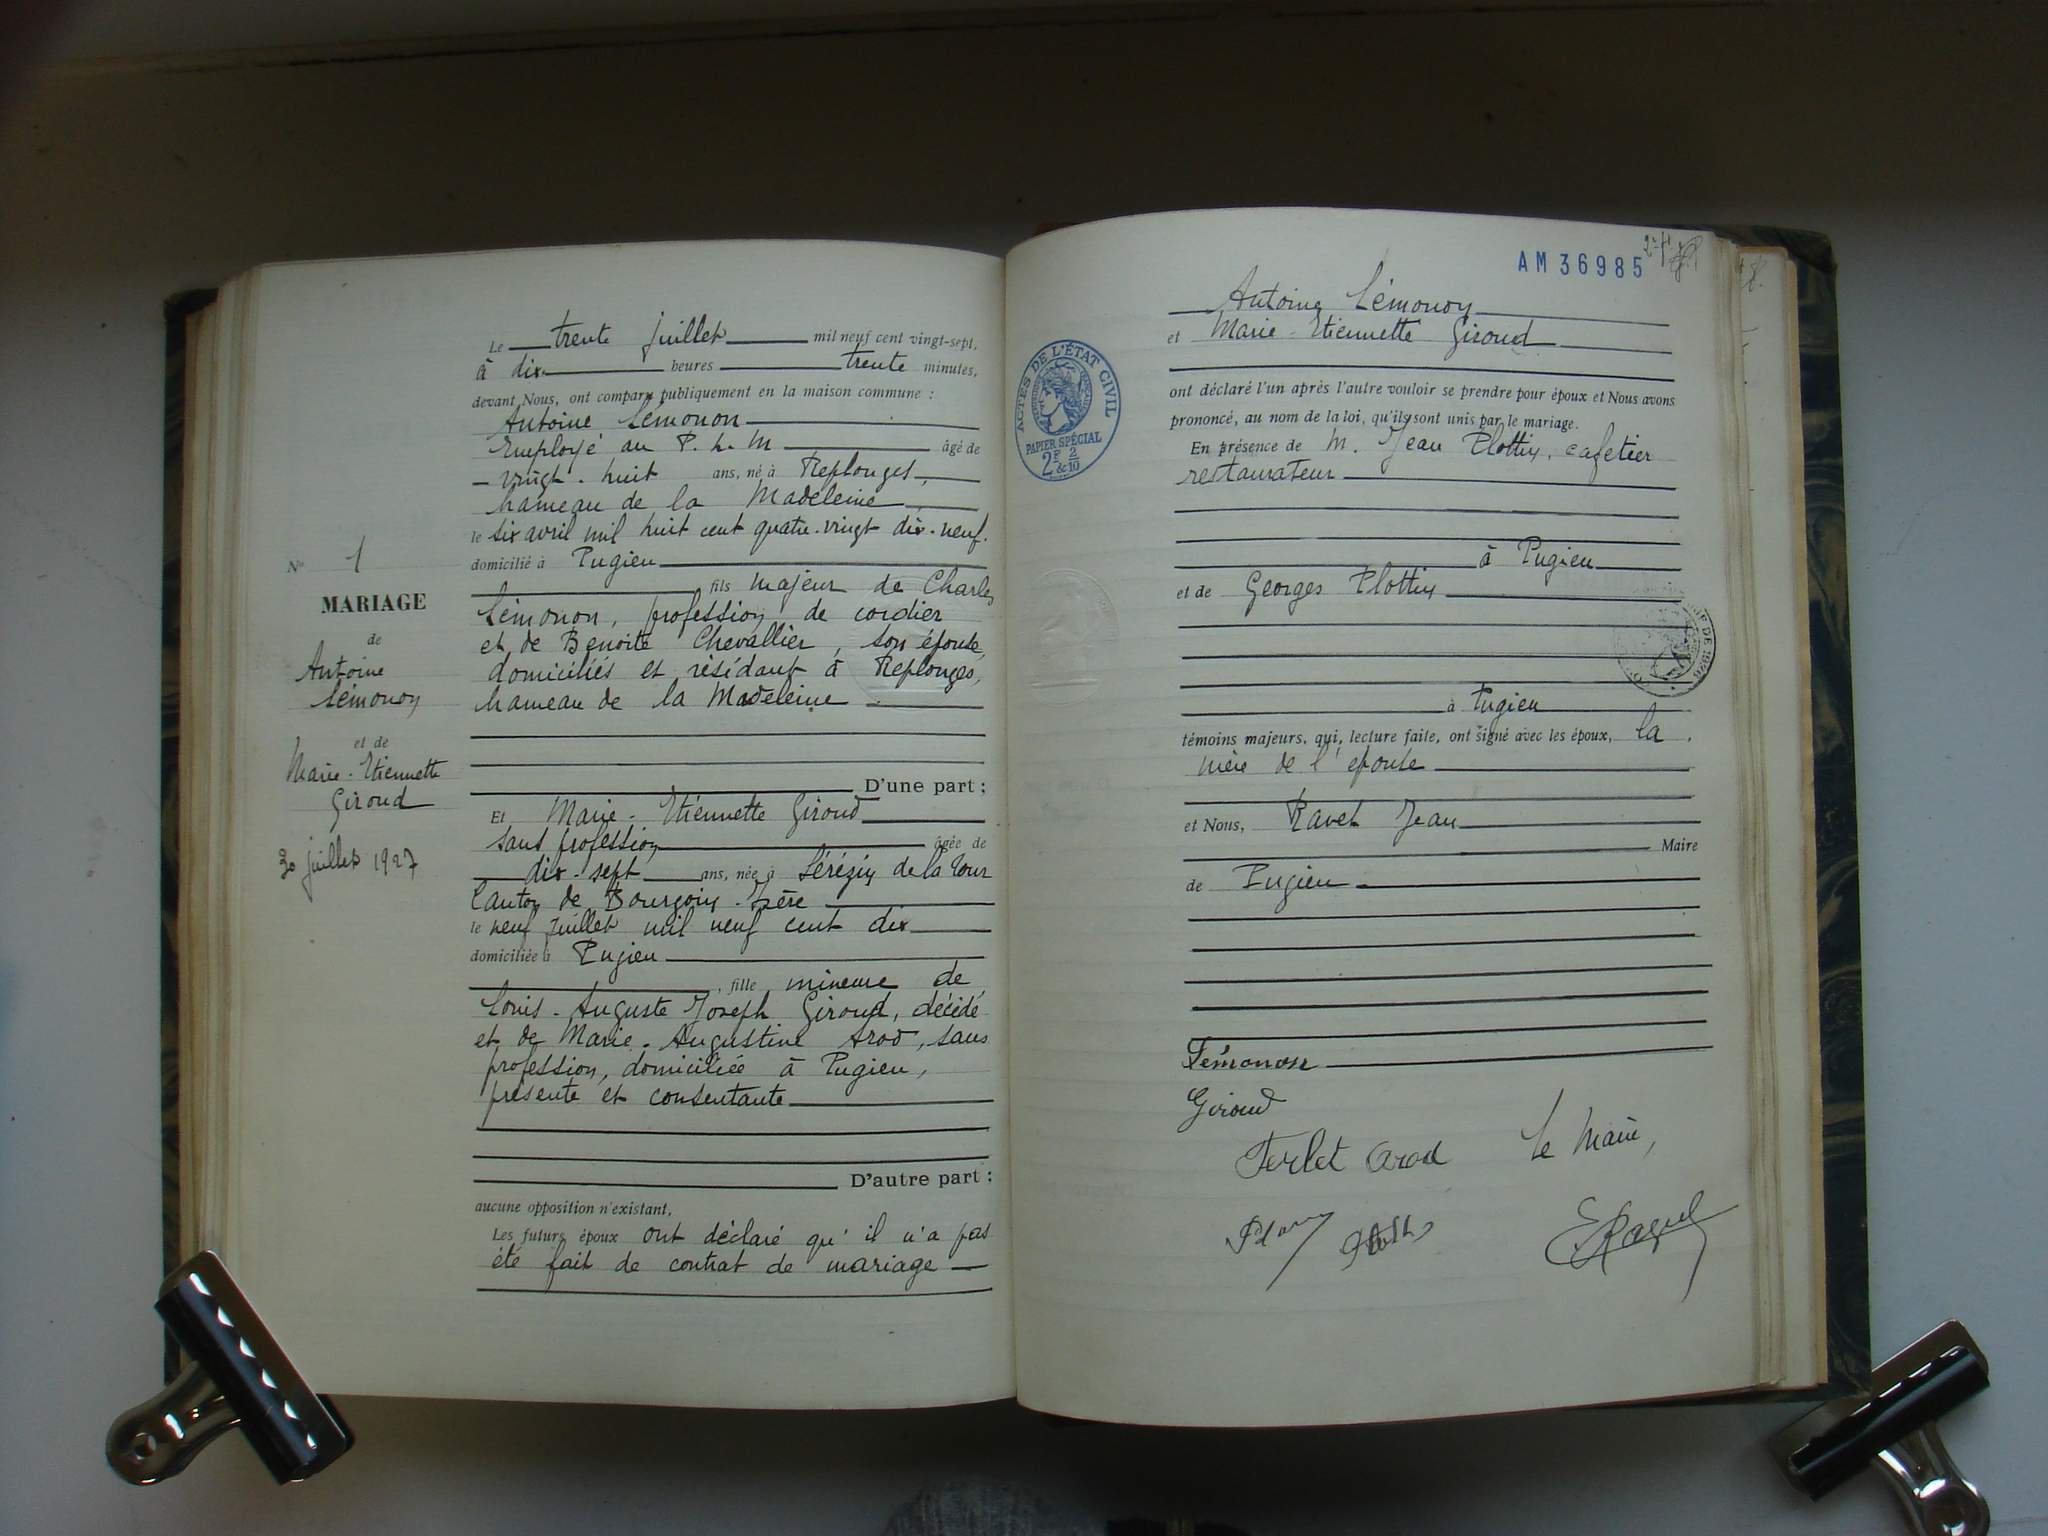 Le trente juillet mil neuf cent vingt-sept,
à dix heures trente minutes,
devant Nous, ont comparu publiquement en la maison commune :
Antoine Lémonon
Employé au P. L. M âgé de
vingt-huit ans, né à Replonges,
hameau de la Madeleine
le six avril mil huit cent quatre-vingt dix-neuf.
domicilié à Pugieu
fils majeur de Charles
Lémonon, profession de cordier
et de Benoite Chevallier, son épouse,
domiciliés et résidant à Replonges,
hameau de la Madeleine
D'une part ;
Et Marie-Etiennette Giroud
sans profession âgée de
dix-sept ans, née à Sérézin de la Tour
Canton de Bourgoin-Isère
le neuf juillet mil neuf cent dix
domiciliée à Pugieu
, fille mineure de
Louis-Auguste Joseph Giroud, décédé
et de Marie-Augustine Arod, sans
profession, domiciliée à Pugieu,
présente et consentante
D'autre part ;
aucune opposition n'existant,
Les futurs époux ont déclaré qu'il n'a pas
été fait de contrat de mariage
N° 1
MARIAGE
de
Antoine
Lémonon
et de
Marie-Etiennette
Giroud
30 juillet 1927
AM36985
Antoine Lémonon
et Marie-Etiennette Giroud
ont déclaré l'un après l'autre vouloir se prendre pour époux et Nous avons
prononcé, au nom de la loi, qu'ils sont unis par le mariage.
En présence de M. Jean Plottin, cafetier
restaurateur
à Pugieu
et de Georges Plottin
à Pugieu
témoins majeurs, qui, lecture faite, ont signé avec les époux, la
mère de l'épouse
et Nous, Ravet Jean
Maire
de Pugieu
Lémonon
Giroud
Ferlet Arod
Le Maire,
ACTES DE L'ÉTAT CIVIL
PAPIER SPÉCIAL
2F & 2/10